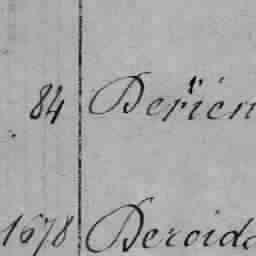 84 Derïen
1678 Deroida